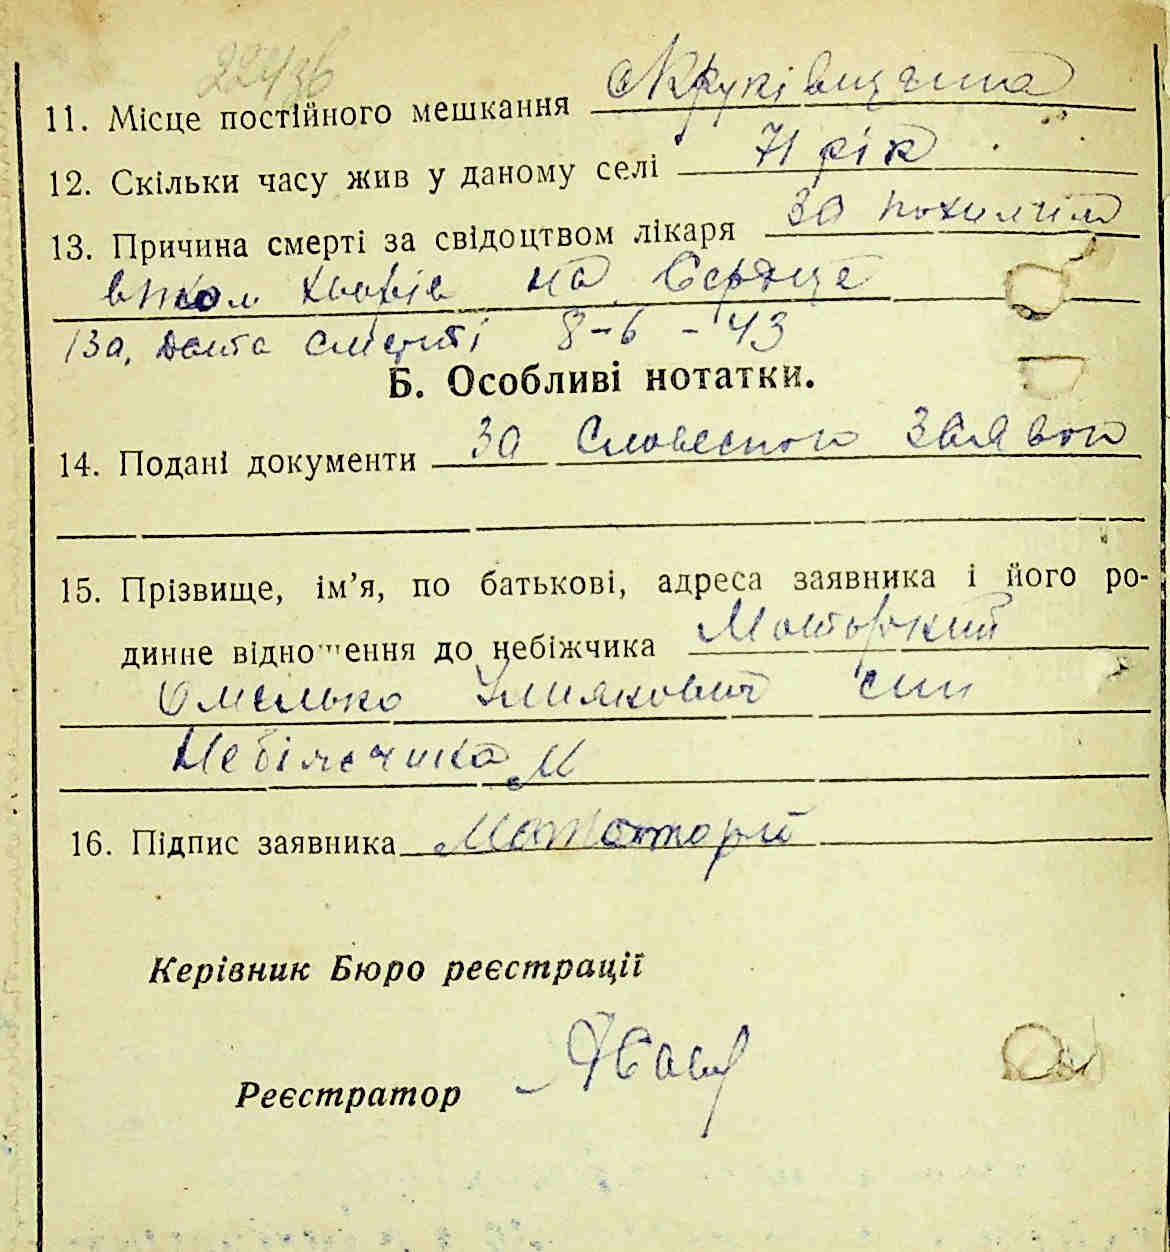 11. Місце постійного мешкання с Круківщина
12. Скільки часу жив у даному селі 71 рік
13. Причина смерті за свідоцтвом лікаря За похилим
віком хворів на Сердце
13а, дата смерті 8-6-43
Б. Особливі нотатки.
14. Подані документи За Словесною Заявою
15. Прізвище, ім’я, по батькові, адреса заявника і його ро-
динне відношення до небіжчика
Омелько син
Небіжчика
16. Підпис заявника
Керівник Бюро реєстрації
Реєстратор